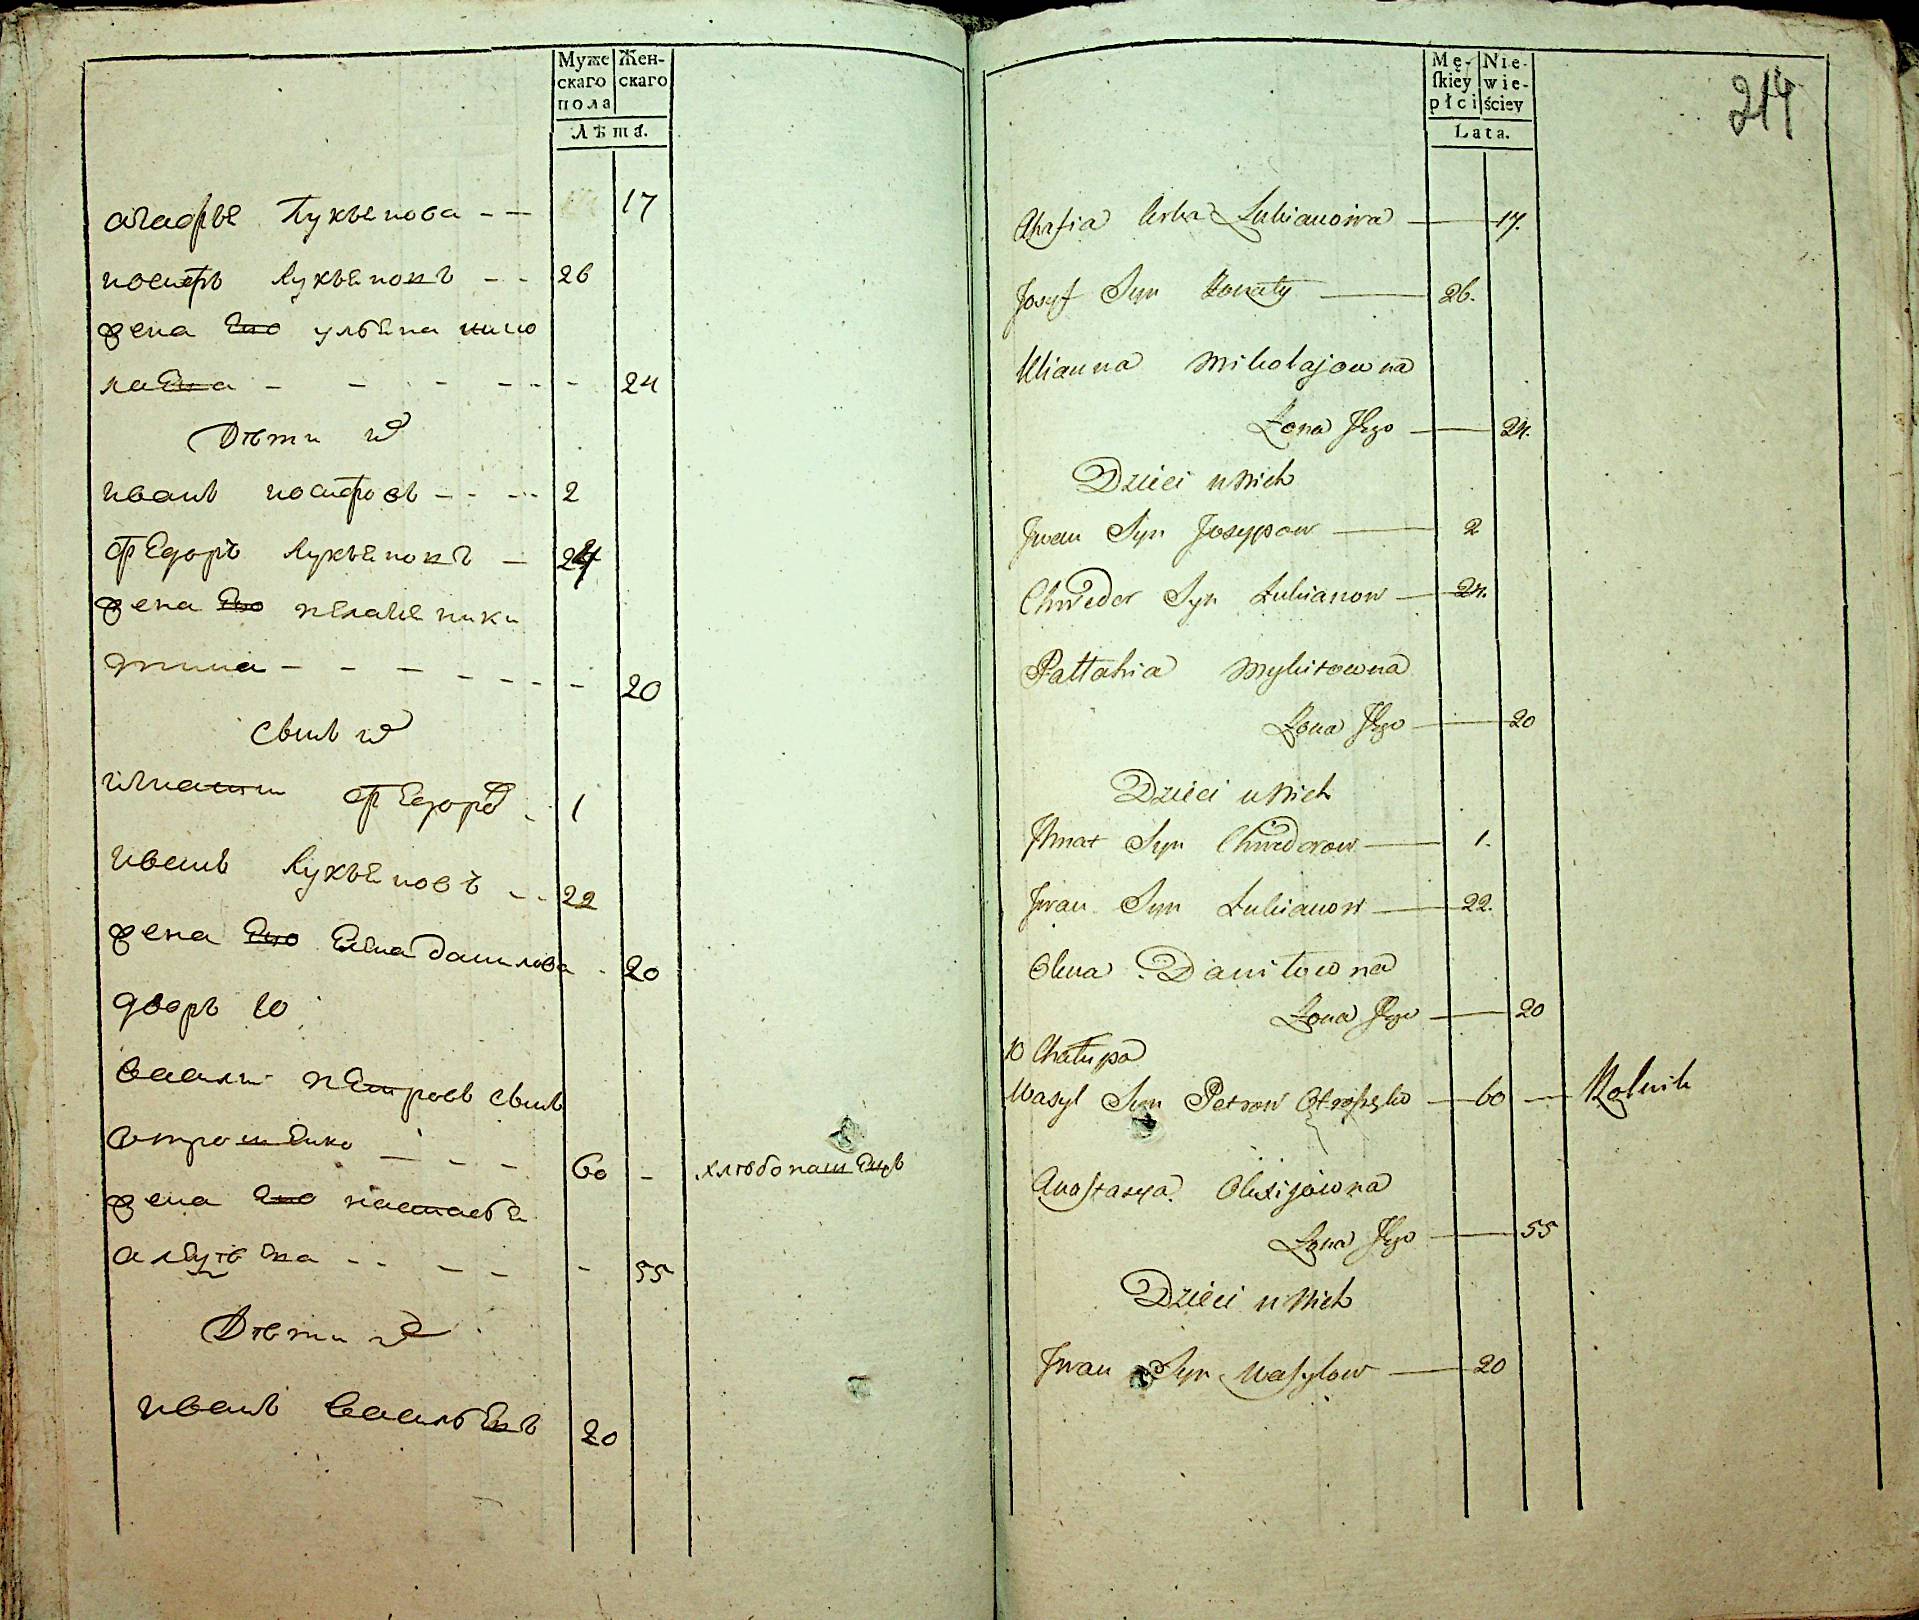 Муже
скаго
пола
Жен-
скаго
Лѣта.
агафьѣ Лукьѣнова - - 17
иосифъ Лукьѣновъ - - 26
жена Его ульѣна нико
лаева - - - - - - 24
Дѣти их
иванъ иосифовъ - - - 2
фЕдоръ Лукьѣновъ - 24
жена Его пЕлагѣѣ ники
тина - - - - - - - 20
сынъ их
игнатий фЕдоров - 1
иванъ Лукьѣновъ - - 22
жена Его Елена данилова - 20
дворъ 10
василий пЕтровъ сынъ
- - - 60 - хлѣбопашЕцъ
жена Его настасьѣ
- - - - - 55
Дѣти их
иванъ васильЕвъ 20
Mę-
skiey
płci
Nie-
wie-
ściey
Lata.
214
Ahafia Corka Lukianowa — 17.
Josyf Syn — 26.
Ulianna Mikołajowna
Żona Jego — 24.
Dzieci u Nich
Jwan Syn Josypow — 2
Chwedor Syn Lukianow — 24.
Pałłahia Mykitowna
Żona Jego — 20
Dzieci u Nich
Jhnat Syn Chwedorow — 1.
Jwan Syn Lukianow — 22.
Olena Daniłowna
Żona Jego — 20
10 Chałupa
Wasyl Syn Petrow — 60 — Rolnik
Anastasya Olexijowna
Żona Jego — 55
Dzieci u Nich
Jwan Syn Wasylow — 20